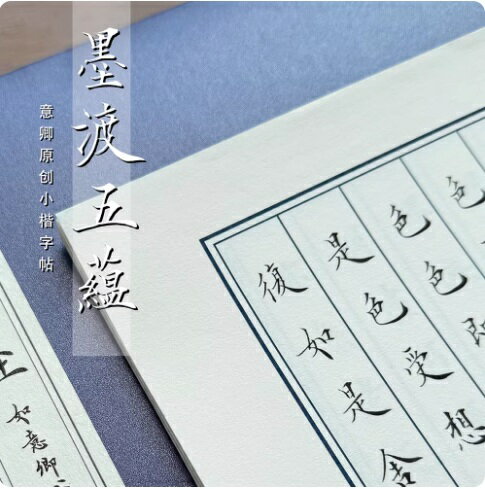 墨渡五蘊
意卿原创小楷字帖
色
色色即
是色受想
復如是舍
如意卿